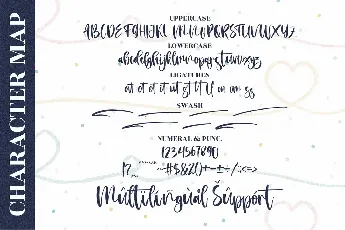 CHARACTER MAP
UPPERCASE
ABCDEFGHIJKL MNOPQRSTUVWXYZ
LOWERCASE
abcdefghijklmnopqrstuvwxyz
LIGATURES
SWASH
NUMERAL & PUNC.
1234567890
Multilingual Support